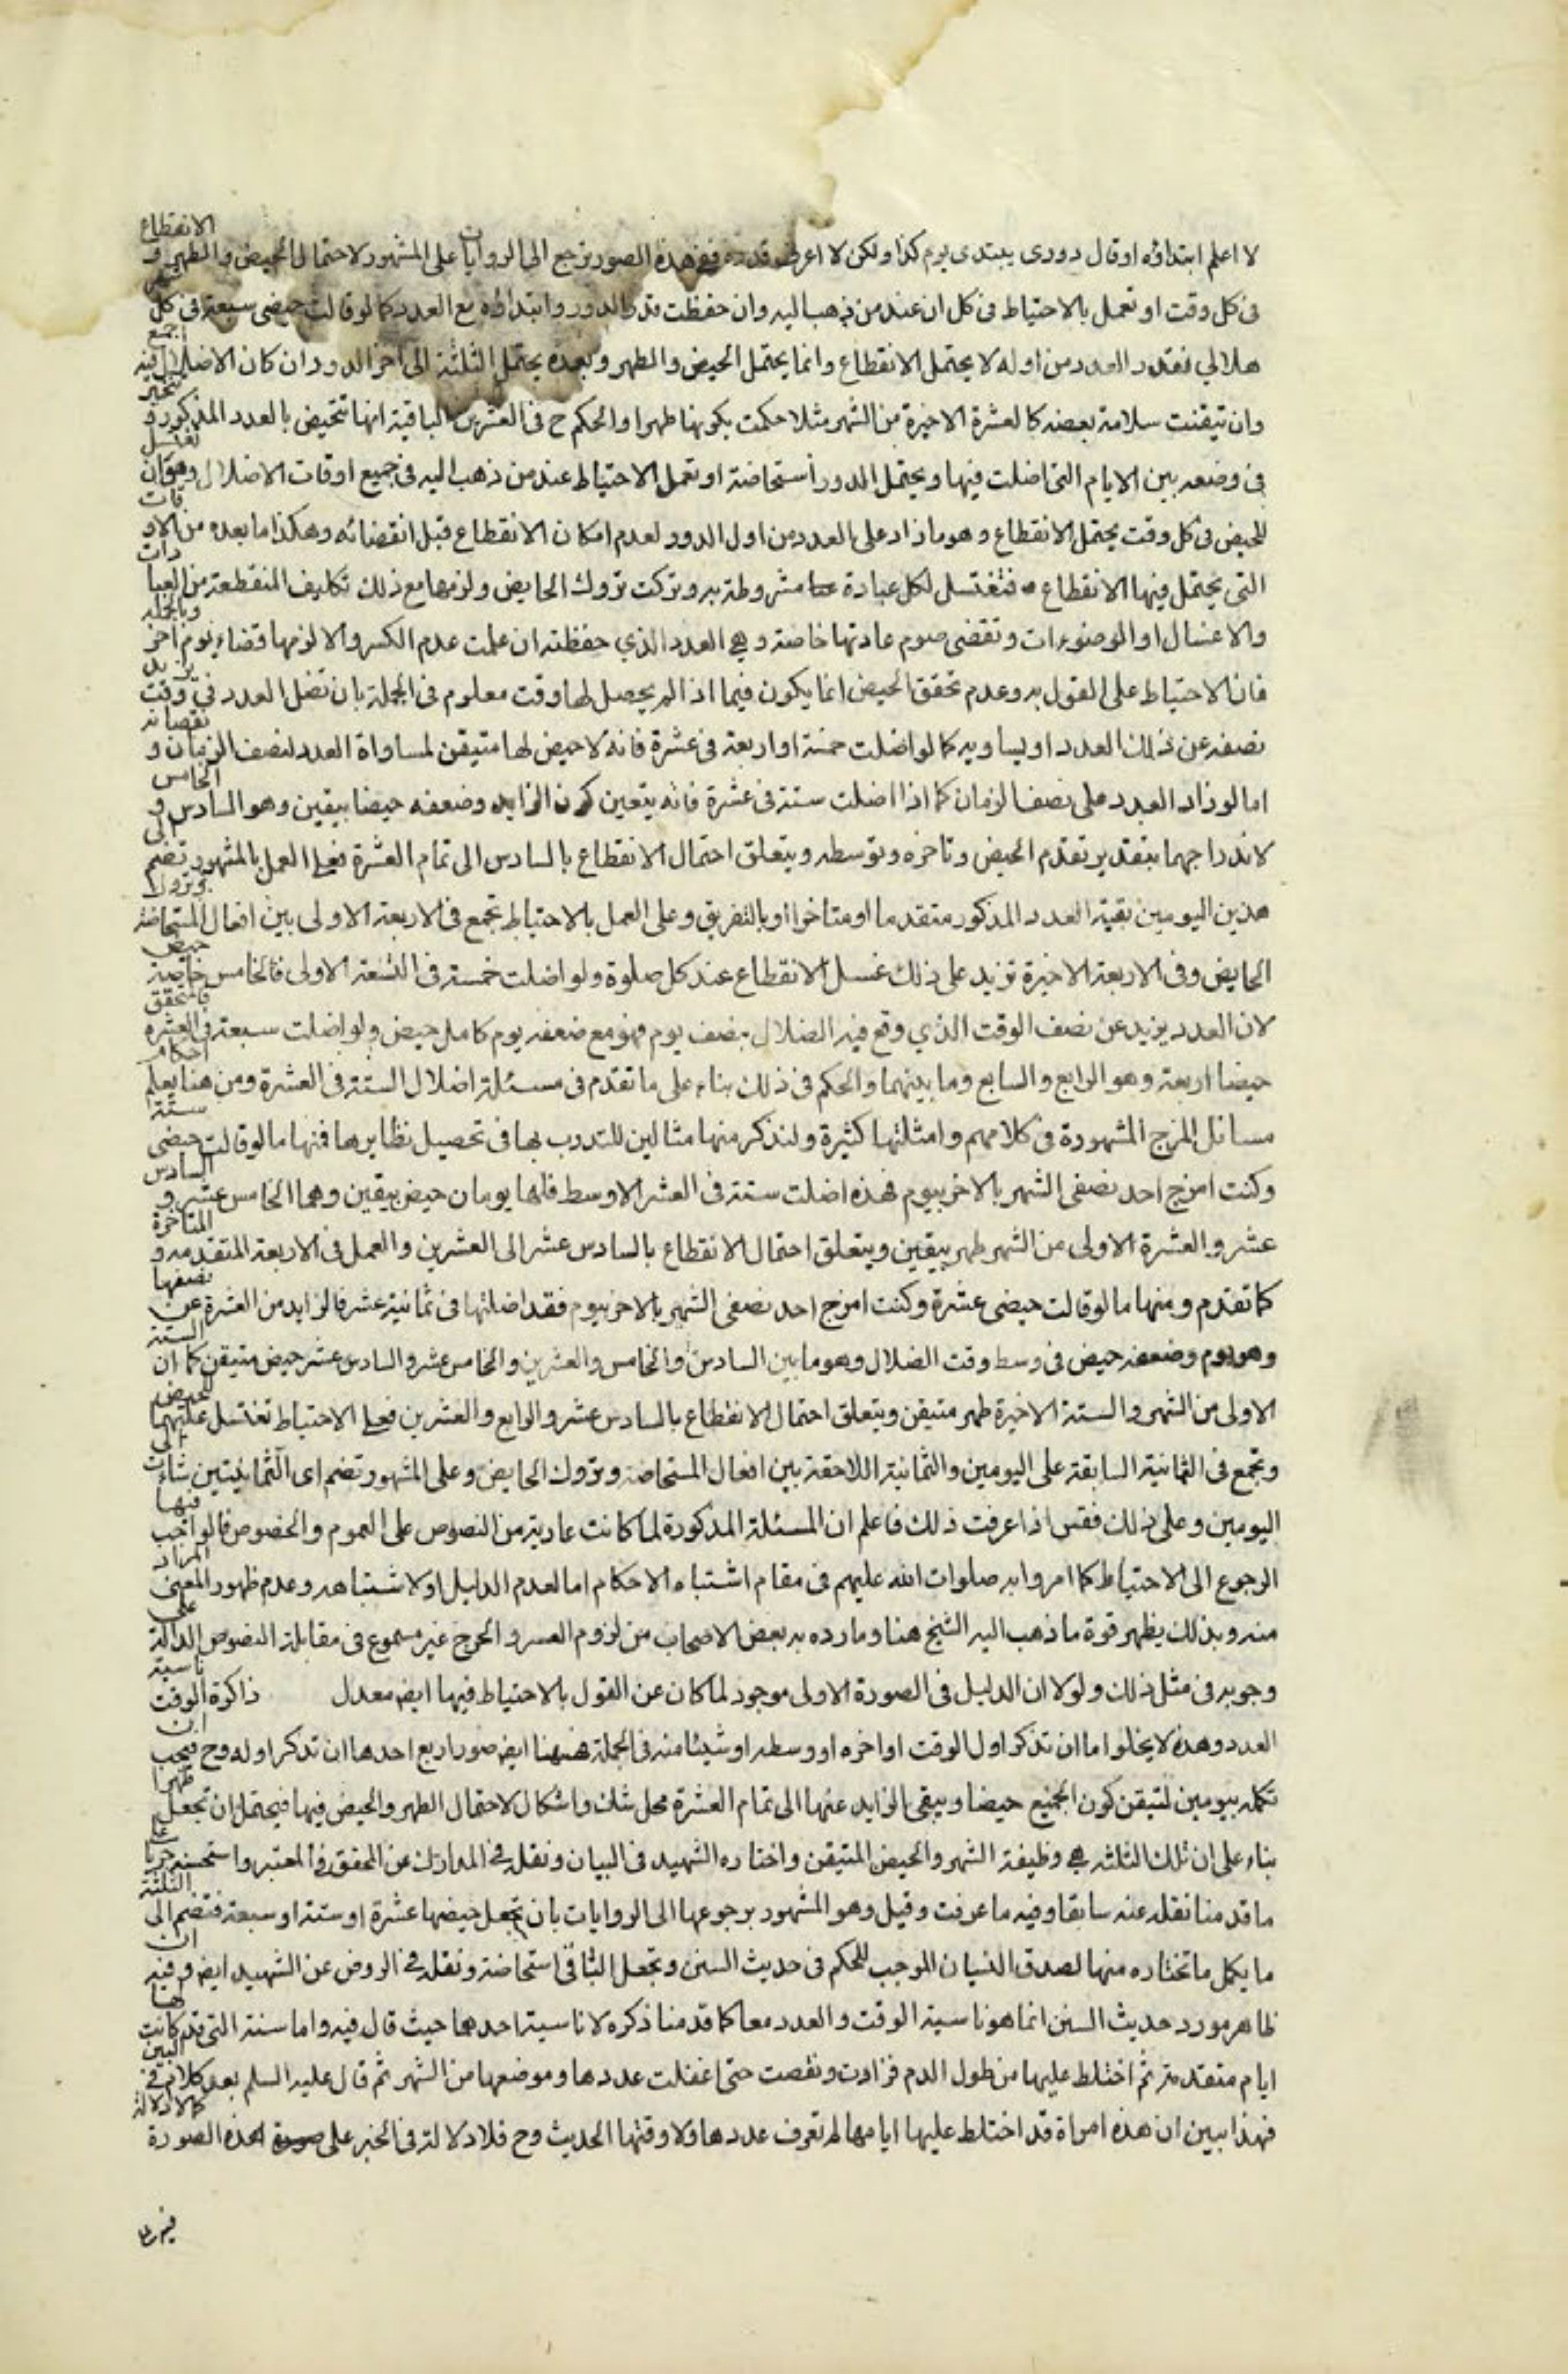 لا اعلم ابتداؤه او قال دورى يبتدى يوم كذا ولكن لا اعرف قدره ففى هذه الصور ترجع الى الروايات على المشهور لاحتمال الحيض والطهر و الانقطاع
فى كل وقت او تعمل بالاحتياط فى كل ان عند من ذهب اليه وان حفظت قدر الدور وابتداؤه مع العدد كما لو قالت حيضى سبعة فى كل
هلالي فقدر العدد من اوله لا يحتمل الانقطاع وانما يحتمل الحيض والطهر وبعده يحتمل الثلثة الى اخر الدور ان كان الاضلال فيه اجمع
وان تيقنت سلامة بعضه كالعشرة الاخيرة من الشهر مثلا حكمت بكونها طهرا والحكم ح فى العشرين الباقية انها تتحيض بالعدد المذكور و تتخير
فى وضعه بين الايام التى اضلت فيها ويحتمل الدور استحاضة او تعمل الاحتياط عند من ذهب اليه فى جميع اوقات الاضلال وهو ان تغتسل
للحيض فى كل وقت يحتمل الانقطاع وهو ما زاد على العدد من اول الدور لعدم امكان الانقطاع قبل انقضائه وهكذا ما بعده من الاوقات
التى يحتمل فيها الانقطاع فتغتسل لكل عبادة مشروطة به وتركت تروك الحايض ولزمها مع ذلك تكاليف المنقطعة من العبادات
والاغسال او الوضوءات وتقضى صوم عادتها خاصة وهى العدد الذي حفظته ان علمت عدم الكسر والا لزمها قضاء يوم اخر وبالجملة
فان الاحتياط على القول به وعدم تحقق الحيض انما يكون فيما اذا لم يحصل لها وقت معلوم فى الجملة بان تضل العدد فى وقت يزيد
نصفه عن ذلك العدد او يساويه كما لو اضلت خمسة او اربعة فى عشرة فانه لا حيض لها متيقن لمساواة العدد لنصف الزمان و نقصانه
اما لو زاد العدد على نصف الزمان كما اذا اضلت ستة فى عشرة فانه يتعين كون الزايد وضعفه حيضا بيقين وهو السادس و الخامس
لاندراجهما بتقدير تقدم الحيض وتاخره وتوسطه ويتعلق احتمال الانقطاع بالسادس الى تمام العشرة فعلى العمل بالمشهور تضم الى
هذين اليومين بقية العدد المذكور متقدما او متاخرا او بالتفريق وعلى العمل بالاحتياط تجمع فى الاربعة الاولى بين افعال المستحاضة وتروك
الحايض وفى الاربعة الاخيرة تزيد على ذلك غسل الانقطاع عند كل صلوة ولو اضلت خمسة فى التسعة الاولى فالخامس خاصة حيض
لان العدد يزيد عن نصف الوقت الذي وقع فيه الضلال بنصف يوم فهو مع ضعفه يوم كامل حيض ولو اضلت سبعة فى العشرة فالمتحقق
حيضا اربعة وهو الرابع والسابع وما بينهما والحكم فى ذلك بناء على ما تقدم فى مسئلة اضلال الستة فى العشرة ومن هنا يعلم احكام
مسائل المزج المشهورة فى كلامهم وامثلتها كثيرة ولنذكر منها مثالين للتدرب بها فى تحصيل نظايرها فمنها ما لو قالت حيضى ستة
وكنت امزج احد نصفى الشهر بالاخر بيوم فهذه اضلت ستة فى العشر الاوسط فلها يومان حيض بيقين وهما الخامس عشر و السادس
عشر والعشرة الاولى من الشهر طهر بيقين ويتعلق احتمال الانقطاع بالسادس عشر الى العشرين والعمل فى الاربعة المتقدمه و المتاخرة
كما تقدم ومنها ما لو قالت حيضى عشرة وكنت امزج احد نصفى الشهر بالاخر بيوم فقد اضلتها فى ثمانية عشر فالزايد من العشرة عن نصفها
وهو يوم وضعفه حيض فى وسط وقت الضلال وهو ما بين السادس والخامس والعشرين والخامس عشر والسادس عشر حيض متيقن كما ان الستة
الاولى من الشهر والستة الاخيرة طهر متيقن ويتعلق احتمال الانقطاع بالسادس عشر والرابع والعشرين فعلى الاحتياط تغتسل عليهما للحيض
وتجمع فى الثمانية السابقة على اليومين والثمانية اللاحقة بين افعال المستحاضة وتروك الحايض وعلى المشهور تضم اى الثمانيتين شاءت الى
اليومين وعلى ذلك فقس اذا عرفت ذلك فاعلم ان المسئلة المذكورة لما كانت عارية من النصوص على العموم والخصوص فالواجب فيها
الرجوع الى الاحتياط كما امروا به صلوات الله عليهم فى مقام اشتباه الاحكام اما لعدم الدليل او لاشتباهه وعدم ظهور المعنى المراد
منه وبذلك يظهر قوة ما ذهب اليه الشيخ هنا وما رده به بعض الاصحاب من لزوم العسر والحرج غير مسموع فى مقابلة النصوص الدالة على
وجوبه فى مثل ذلك ولولا ان الدليل فى الصورة الاولى موجود لما كان عن القول بالاحتياط فيها ايض معدل ذاكرة الوقت ناسية
العدد وهذه لا يخلو اما ان تذكر اول الوقت او اخره او وسطه او شيئا منه فى الجملة فههنا ايض صور اربع احدها ان تذكر اوله وح فيجب ان
تكمله بيومين لتيقن كون الجميع حيضا ويبقى الزايد عنها الى تمام العشرة محل شك واشكال لاحتمال الطهر والحيض فيها فيحتمل ان تجعل طهرا
بناء على ان تلك الثلثة هى وظيفة الشهر والحيض المتيقن واختاره الشهيد فى البيان ونقله فى المدارك عن المحقق فى المعتبر واستحسنه جريا على
ما قدمنا نقله عنه سابقا وفيه ما عرفت وقيل وهو المشهور برجوعها الى الروايات بان تجعل حيضها عشرة او ستة او سبعة فتضم الى الثلثة
ما يكمل ما تختاره منها لصدق النسيان الموجب للحكم فى حديث السنن وتجعل الباقى استحاضة ونقله فى الروض عن الشهيد ايض وفيه ان
ظاهر مورد حديث السنن انما هو ناسية الوقت والعدد معا كما قدمنا ذكره لا ناسية احدهما حيث قال فيه واما سنة التى قد كانت لها
ايام متقدمة ثم اختلط عليها من طول الدم فزادت ونقصت حتى اغفلت عددها وموضعها من الشهر ثم قال عليه السلم بعد كلام فى البين
فهذا يبين ان هذه امراة قد اختلط عليها ايامها لم تعرف عددها ولا وقتها الحديث وح فلا دلالة فى الخبر على هذه الصورة كما لا دلالة